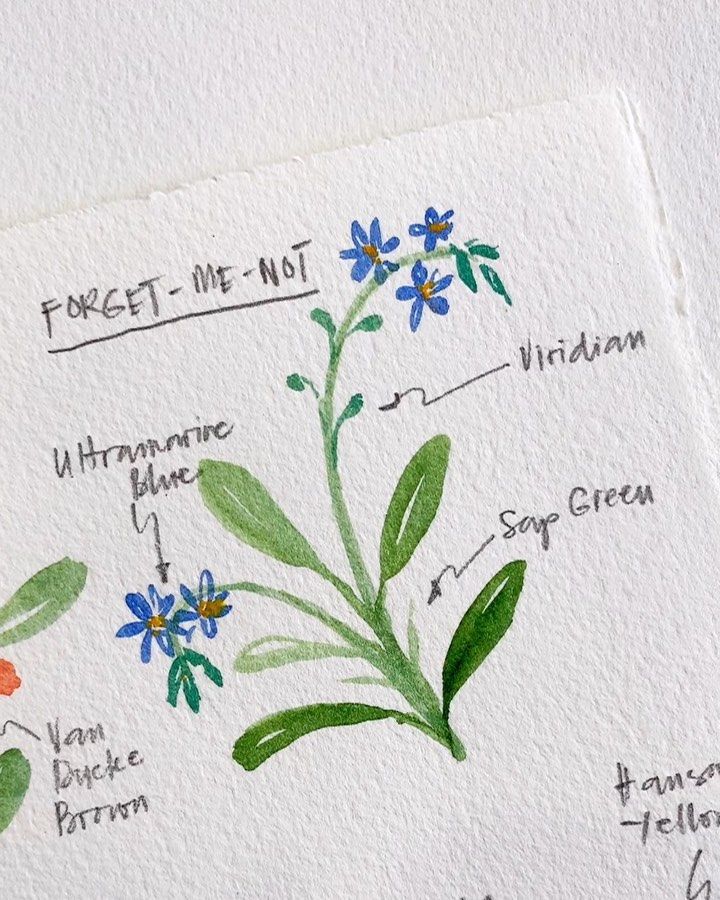 FORGET-ME-NOT
Viridian
Ultramarine
Blue
Sap Green
Van
Dycke
Brown